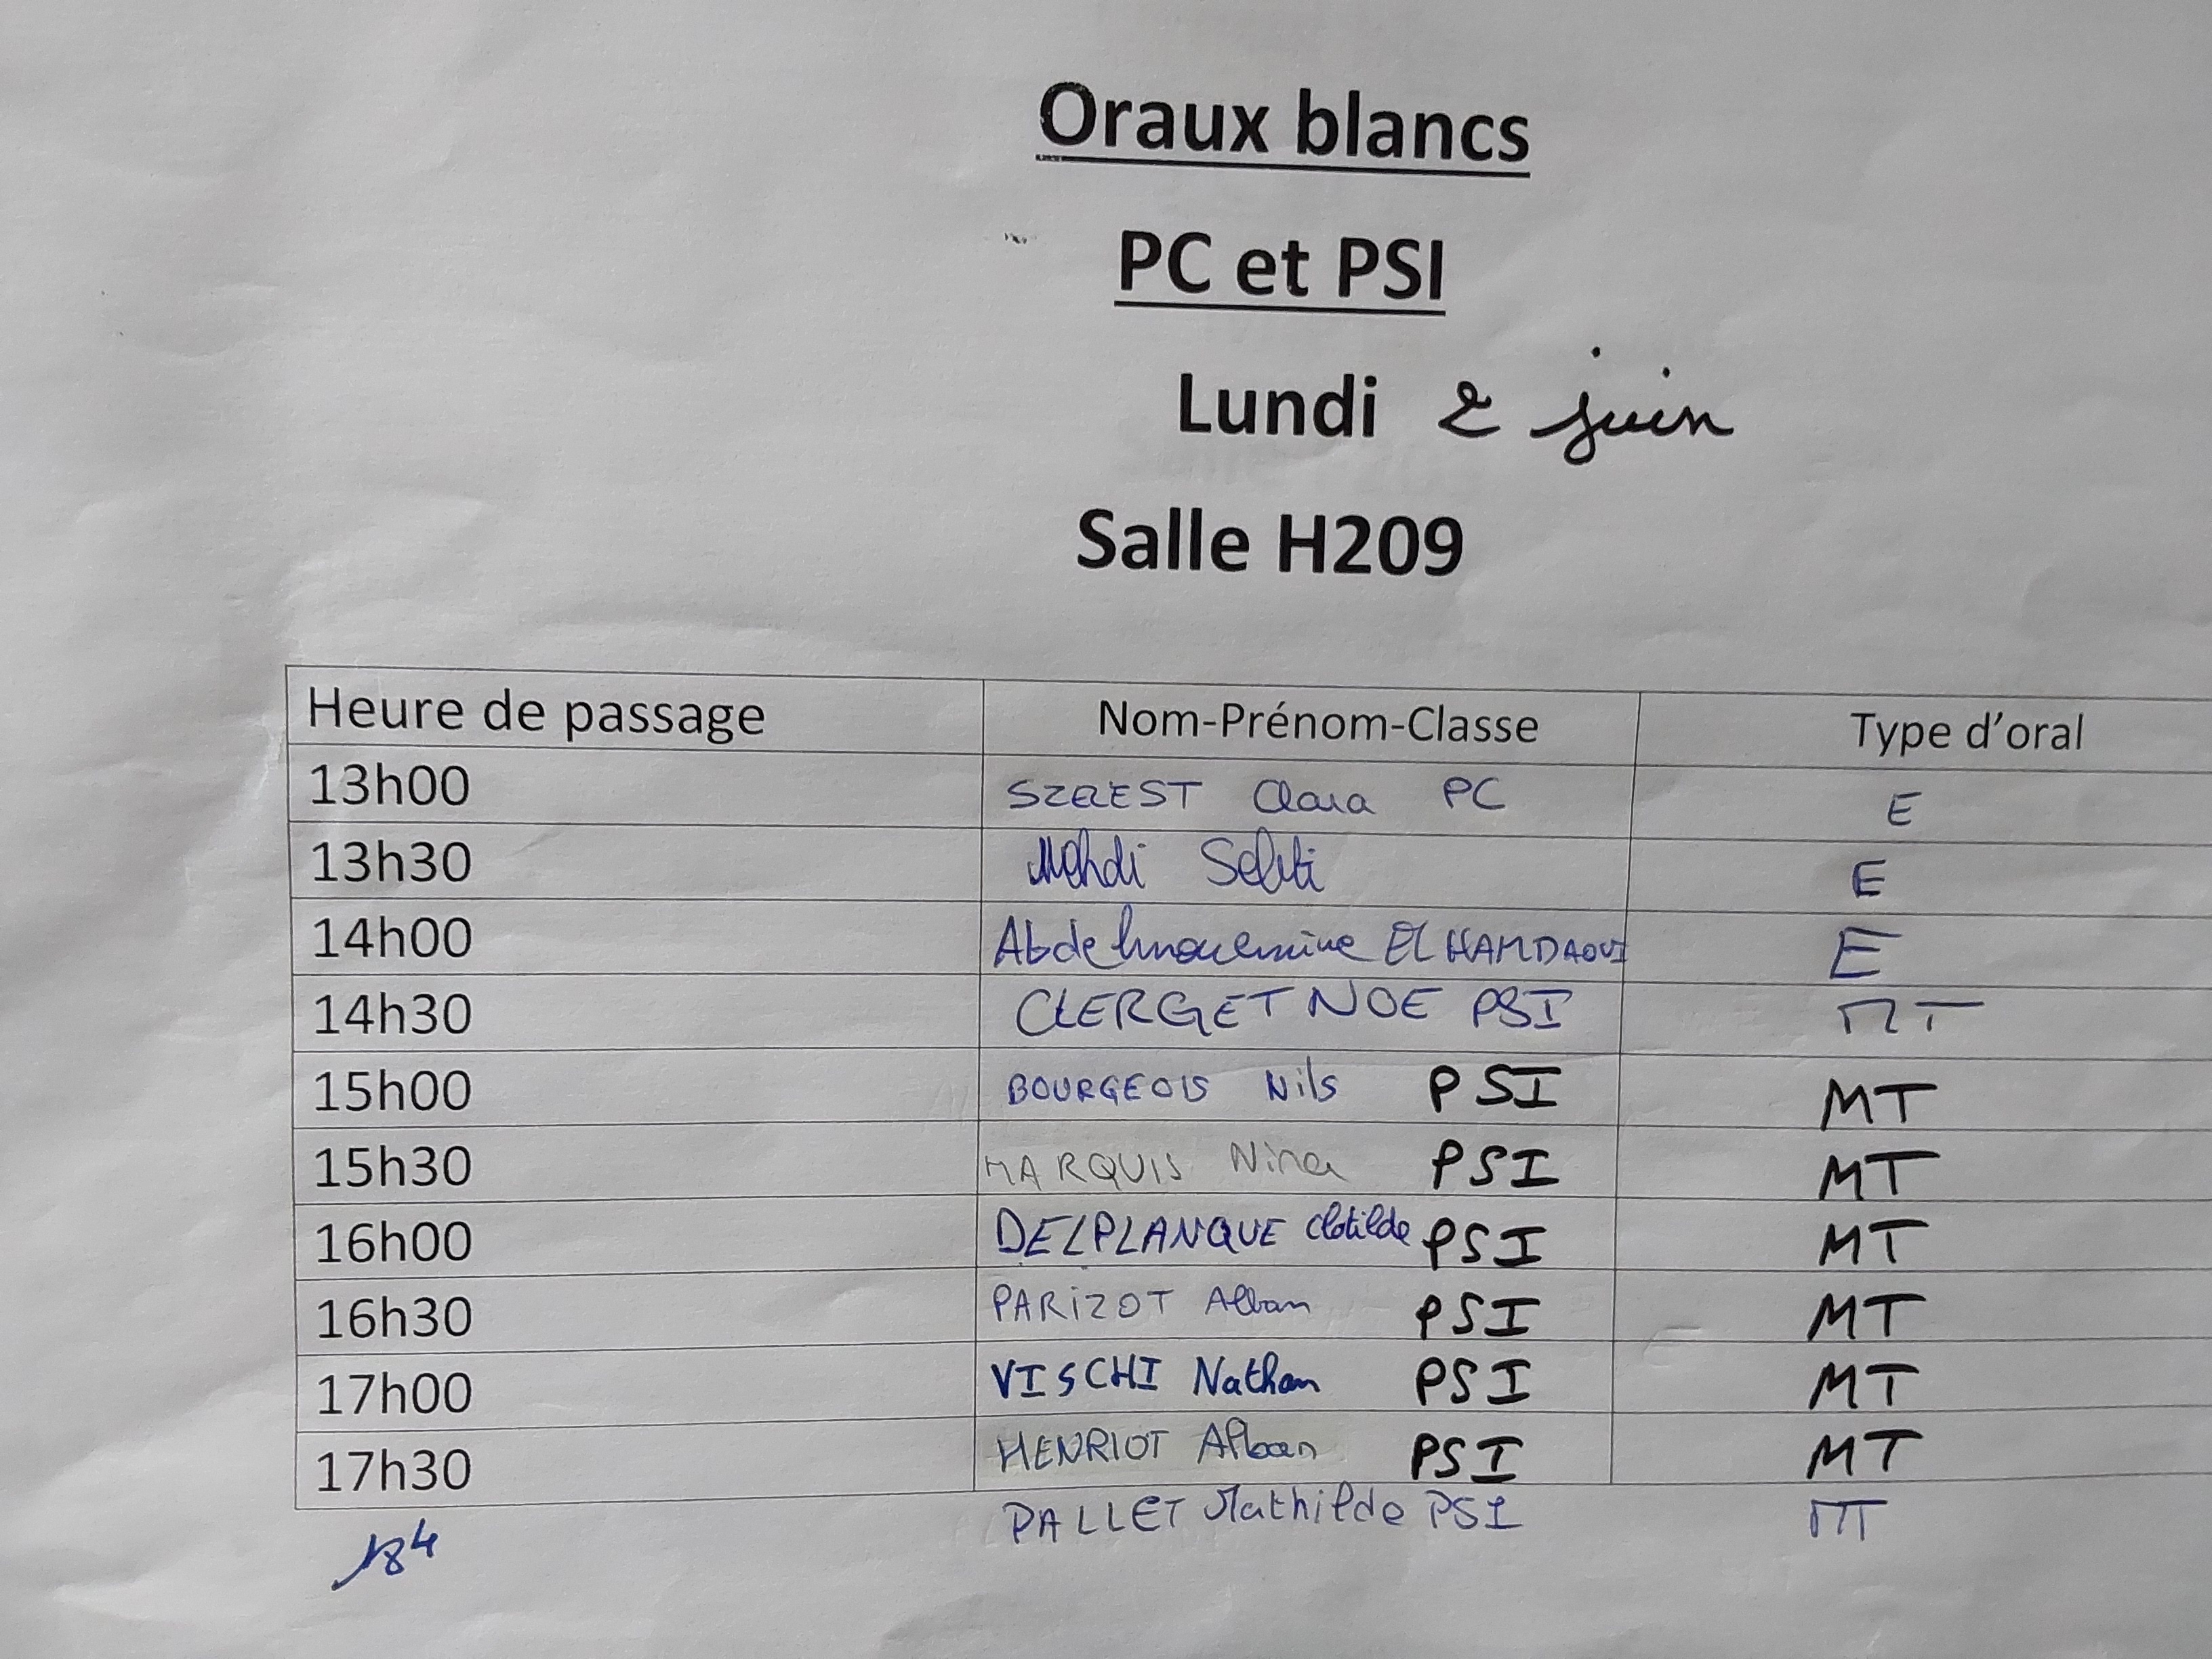 Oraux blancs
PC et PSI
Lundi 2 juin
Salle H209
Heure de passage Nom-Prénom-Classe Type d'oral
13h00 Clara PC E
13h30 Mehdi E
14h00 Abdelmoumine El HAMDAOUI E
14h30 CLERGET NOE PSI MT
15h00 BOURGEOIS Nils PSI MT
15h30 MARQUIS Nina PSI MT
16h00 DELPLANQUE Clotilde PSI MT
16h30 PARIZOT Alban PSI MT
17h00 VISCHI Nathan PSI MT
17h30 HENRIOT Alban PSI MT
18h PALLET Mathilde PSI MT